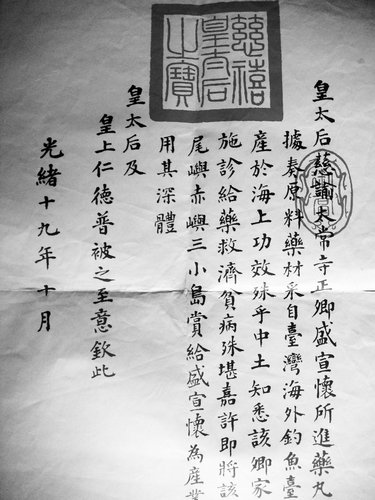 慈禧皇太后之寶
皇太后慈諭太常寺正卿盛宣懷所進藥丸
據奏原料藥材采自臺灣海外釣魚臺
產於海上功效殊乎中土知悉該卿家
施診給藥救濟貧病殊堪嘉許即將該
尾嶼赤嶼三小島賞給盛宣懷為產業
用其深體
皇太后及
皇上仁德普被之至意欽此
光緒十九年十月